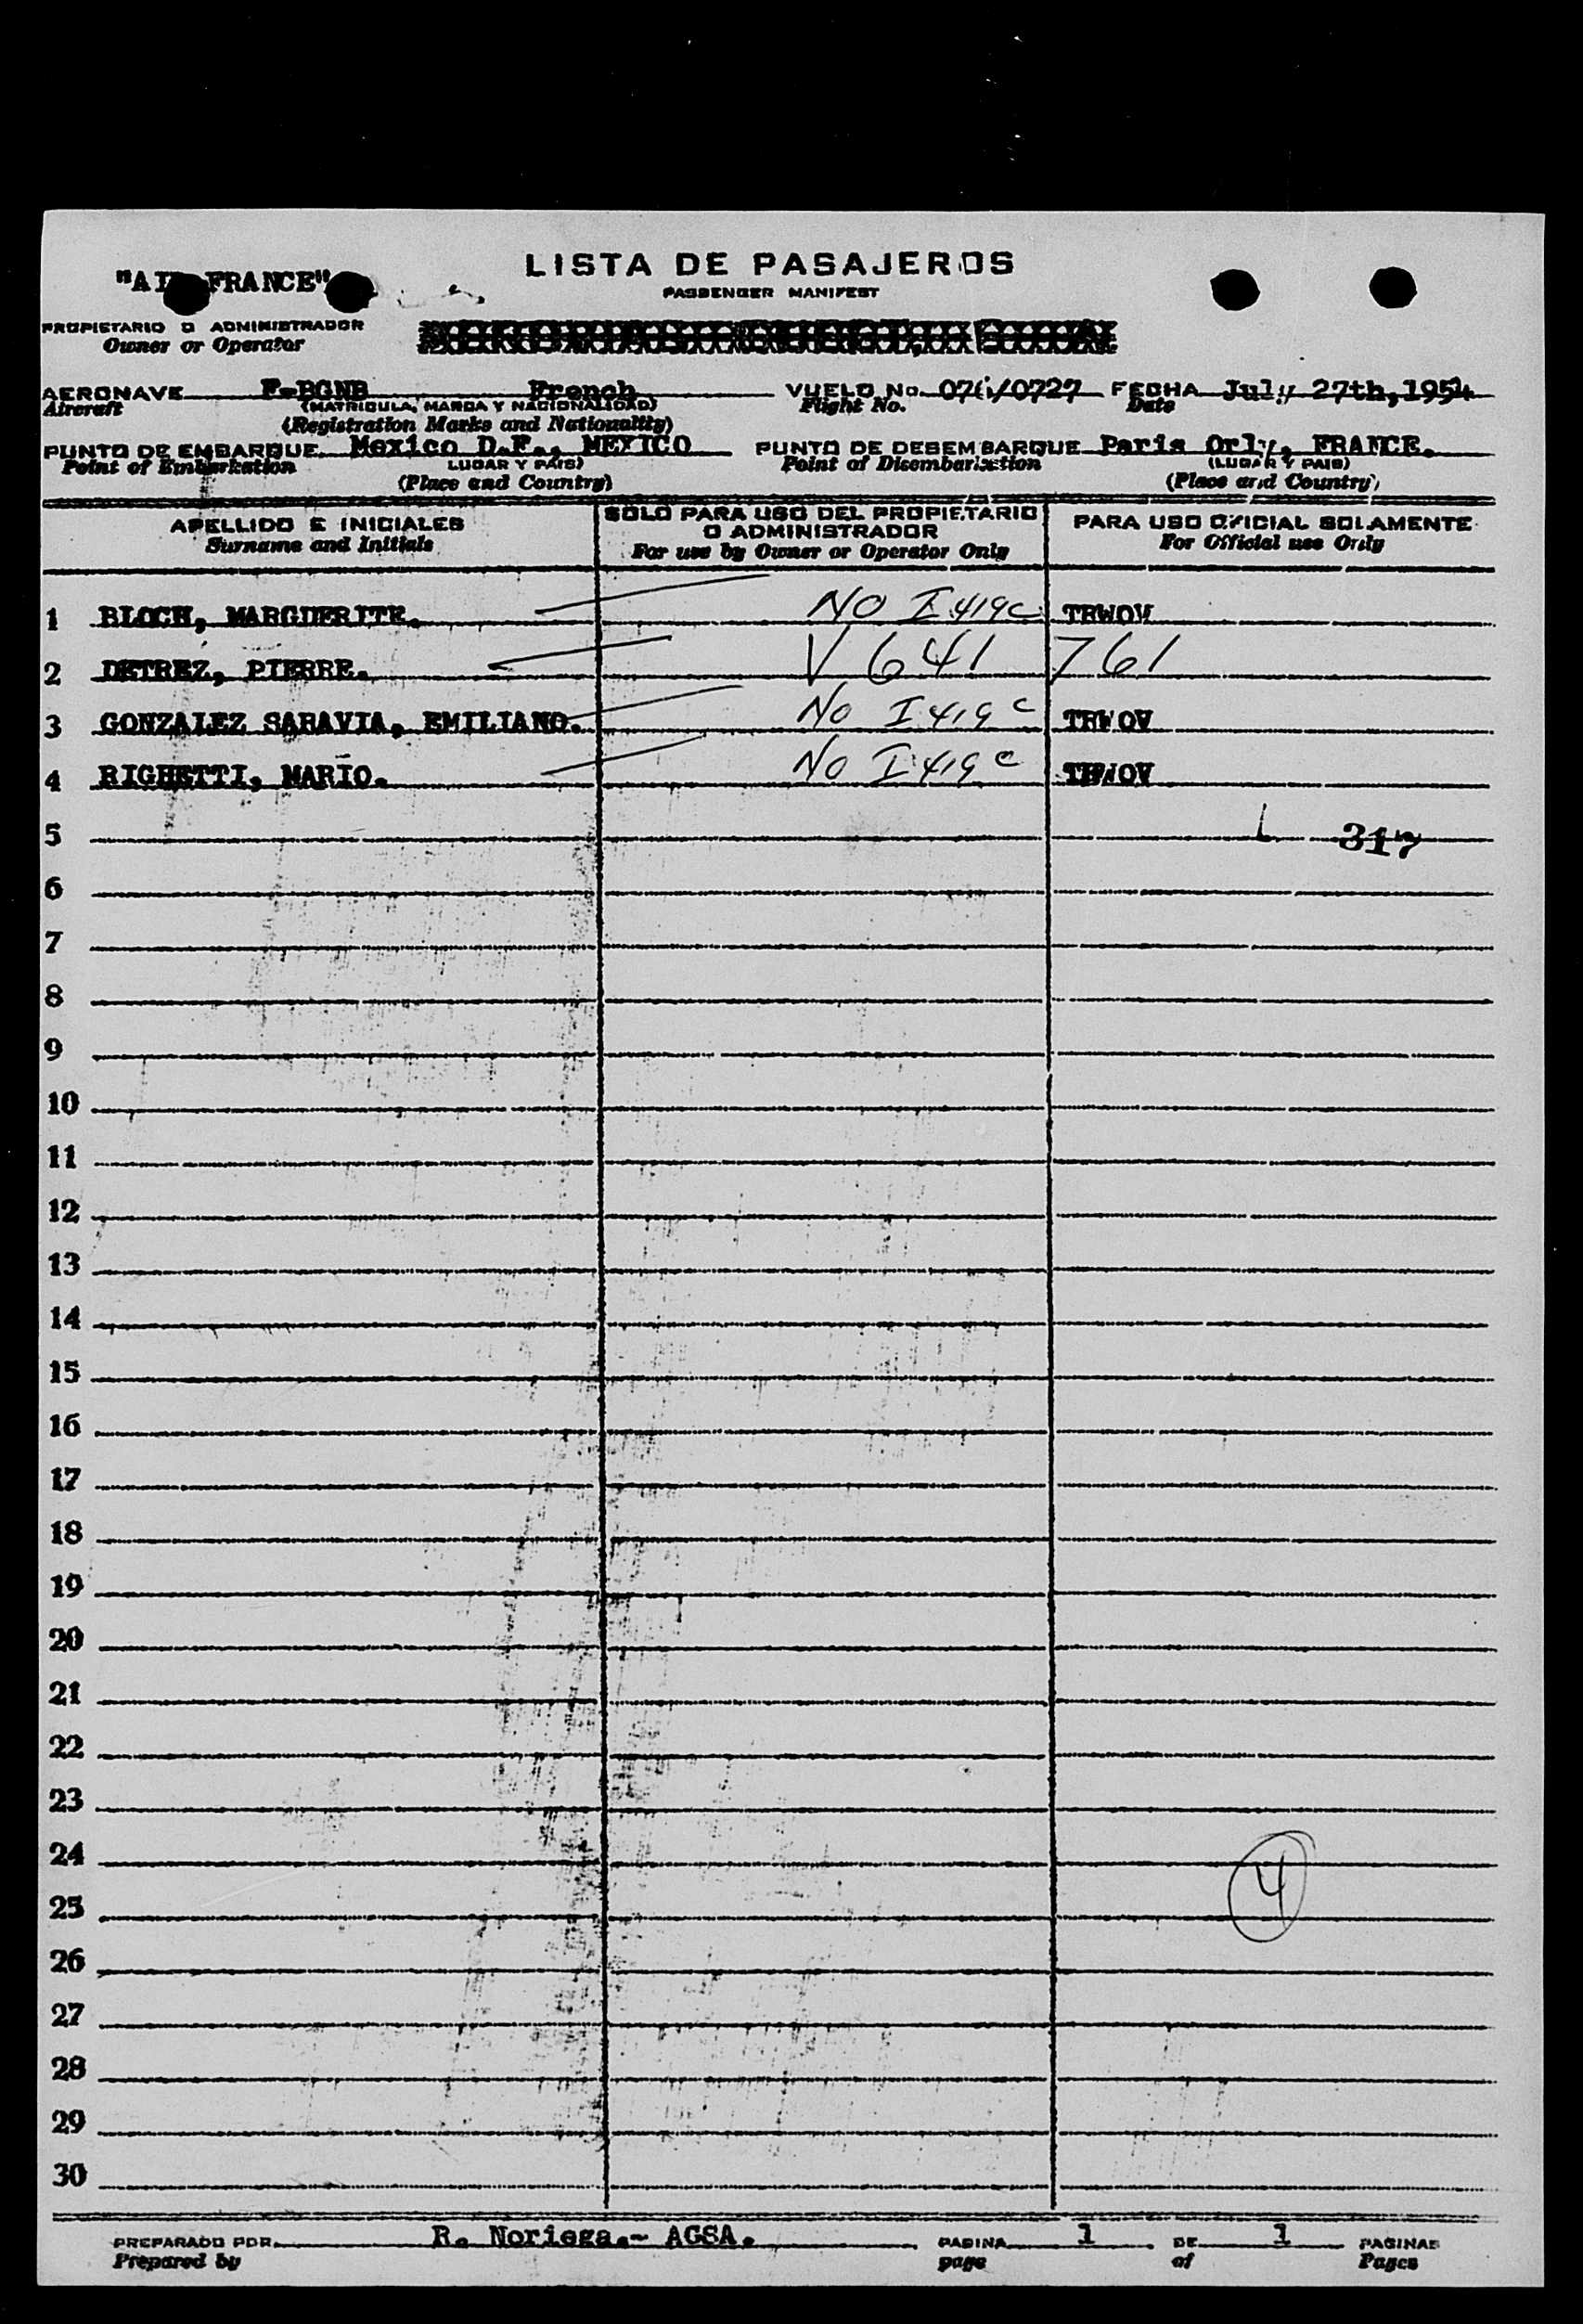 LISTA DE PASAJEROS
"AIR FRANCE"
PASSENGER MANIFEST
PROPIETARIO O ADMINISTRADOR
Owner or Operator
AERONAVE F-BGNB French VUELO No. /0727 FECHA July 27th, 1954
Aircraft (MATRICULA, MARCA Y NACIONALIDAD) Flight No. Date
(Registration Marks and Nationality)
PUNTO DE EMBARQUE Mexico D.F., MEXICO PUNTO DE DESEMBARQUE Paris Orly, FRANCE.
Point of Embarkation LUGAR Y PAIS) Point of Disembarkation (LUGAR Y PAIS)
(Place and Country) (Place and Country)
APELLIDO E INICIALES SOLO PARA USO DEL PROPIETARIO O ADMINISTRADOR PARA USO OFICIAL SOLAMENTE
Surname and Initials For use by Owner or Operator Only For Official use Only
1 BLOCH, MARGUERITE. NO I 419c TRWOV
2 DETREZ, PIERRE. V 641 761
3 GONZALEZ SARAVIA, EMILIANO. No I 419 c TRWOV
4 RIGHETTI, MARIO. No I 419 c TRWOV
5 317
6
7
8
9
10
11
12
13
14
15
16
17
18
19
20
21
22
23
24
4
25
26
27
28
29
30
PREPARADO POR R. Noriega.- AGSA. PAGINA 1 DE 1 PAGINAS
Prepared by page of Pages